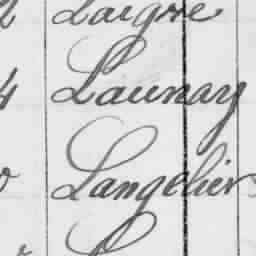 Laigre
4 Launay
Langelier